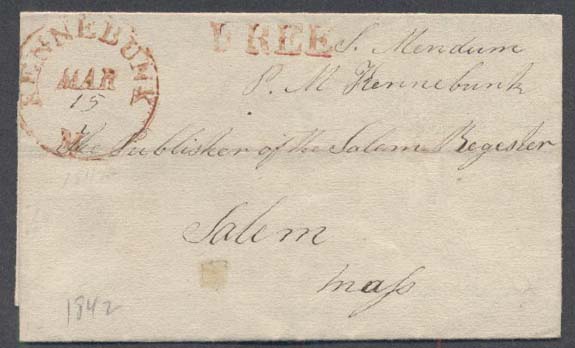 KENNEBUNK
MAR
15
M
FREE
S. Mendum
P. M Kennebunk
The Publisher of the Salem Register
Salem
Mass
1842